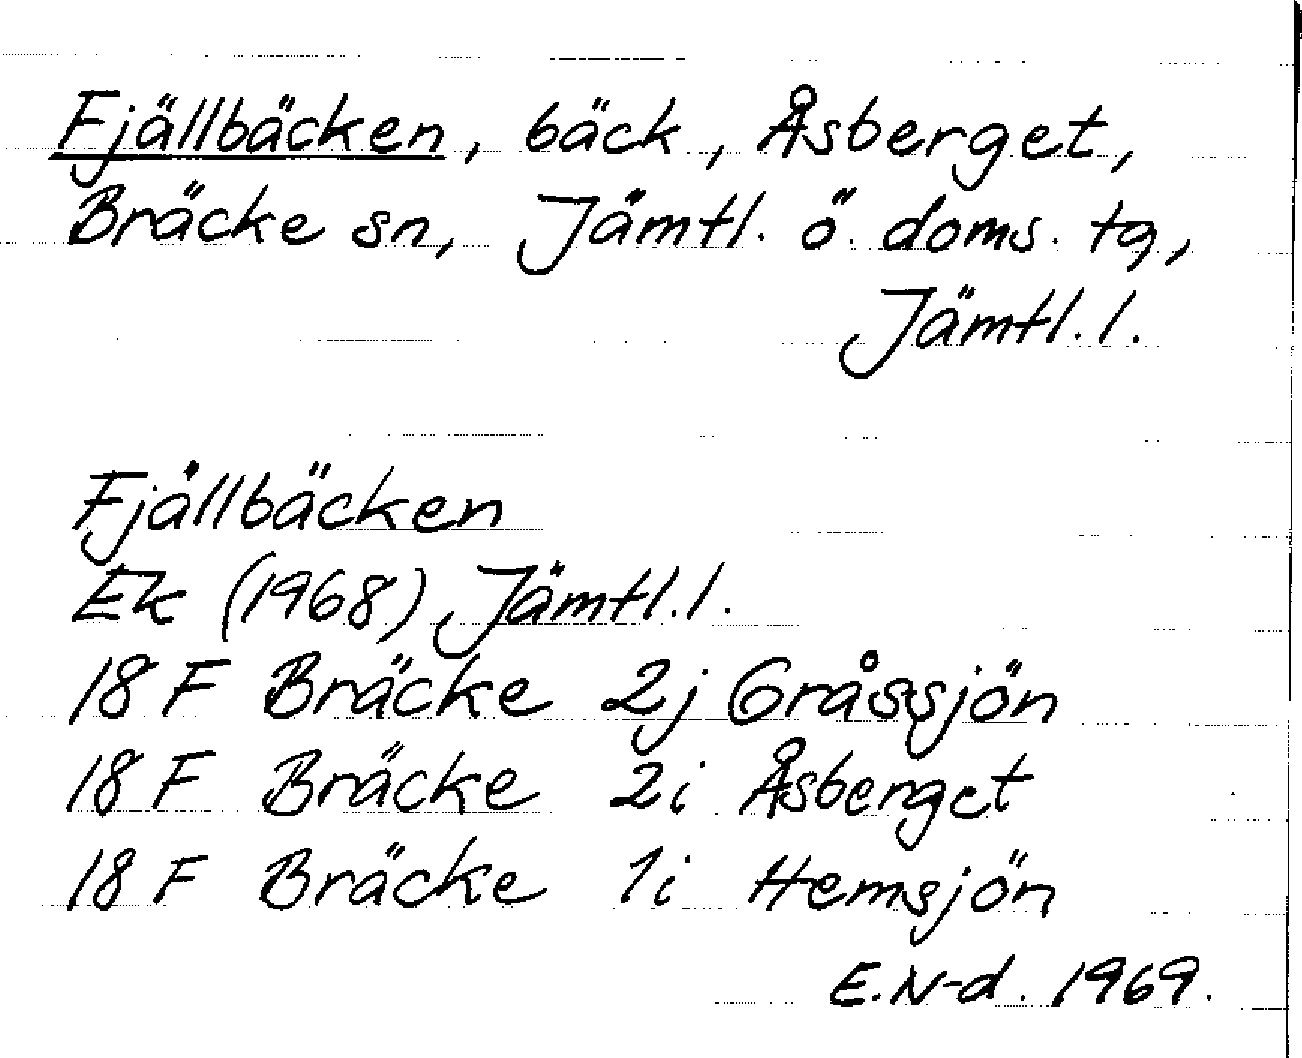 Fjällbäcken, bäck, Åsberget,
Bräcke sn, Jämtl. ö. doms. tg,
Jämtl. l.
Fjällbäcken
Ek (1968) Jämtl. l.
18 F Bräcke 2j Gråssjön
18 F Bräcke 2i Åsberget
18 F Bräcke 1i Hemsjön
E. N-d. 1969.